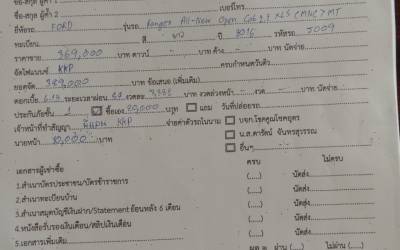 ชื่อ-สกุล ผู้ค้ำ 2 เบอร์โทร
ยี่ห้อรถ FORD รุ่นรถ Ranger All-New Open Cab 2.2 XLS (MNC) MT
ทะเบียน สี ขาว ปี 2016 รหัสรถ J009
ราคาขาย 369,000 บาท ดาวน์ บาท ค้าง บาท นัดจ่าย
จัดไฟแนนซ์ KKP ครบกำหนดวันที่
ยอดจัด 389,000 บาท ข้อเสนอ (เพิ่มเติม)
ดอกเบี้ย ระยะเวลาผ่อน 84 งวดละ บาท งวดล่วงหน้า บาท นัดจ่าย
ประกันภัยชั้น ซื้อเอง 20,000 บาท แถม วันที่ปล่อยรถ
เจ้าหน้าที่ทำสัญญา KKP จ่ายค่าตัวรถในนาม บจก.โชคคูณโชคศุธร
นายหน้า 10,000 บาท น.ส.ดารัตน์ จันทรสุวรรณ
อื่นๆ
เอกสารผู้เช่าซื้อ ครบ ไม่ครบ
1.สำเนาบัตรประชาชน/บัตรข้าราชการ (....) นัดส่ง
2.สำเนาทะเบียนบ้าน (....) นัดส่ง
3.สำเนาสมุดบัญชีเงินฝาก/Statement ย้อนหลัง 6 เดือน (....) นัดส่ง
4.หนังสือรับรองเงินเดือน/สลิปเงินเดือน (....) นัดส่ง
5.เอกสารเพิ่มเติม (....) นัดส่ง
ผล = ผ่าน (....) ไม่ผ่าน (....)